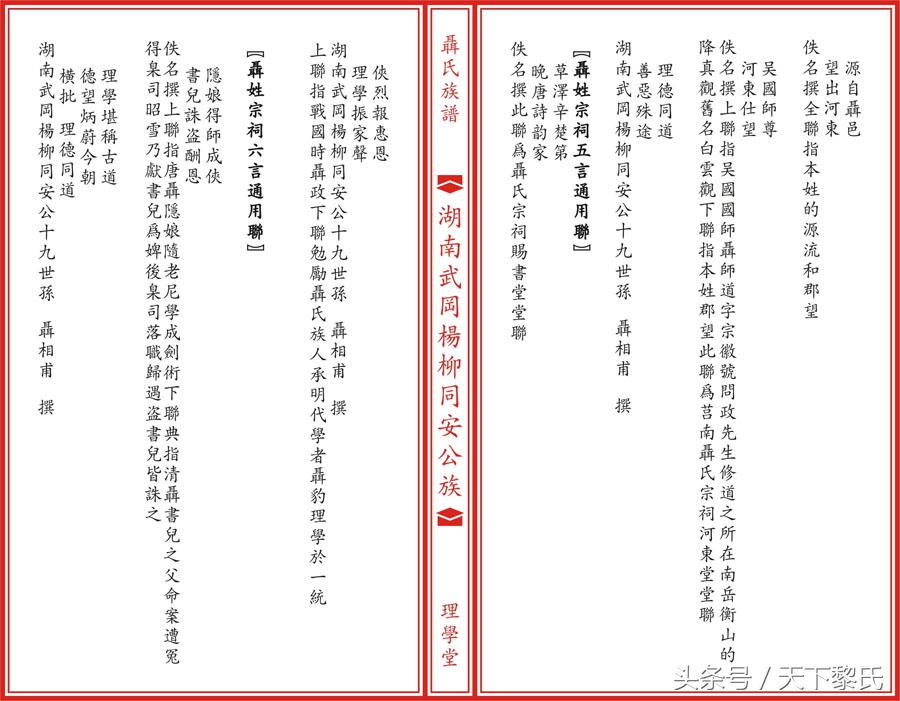 源自聶邑
望出河東
佚名撰全聯指本姓的源流和郡望
吴國師尊
河東仕望
佚名撰上聯指吴國國師聶師道字宗徽號問政先生修道之所在南岳衡山的
降真觀舊名白雲觀下聯指本姓郡望此聯爲莒南聶氏宗祠河東堂堂聯
理德同道
善惡殊途
湖南武岡楊柳同安公十九世孫 聶相甫 撰
〖聶姓宗祠五言通用聯〗
草澤辛楚第
晚唐詩韵家
佚名撰此聯爲聶氏宗祠賜書堂堂聯
聶氏族譜
湖南武岡楊柳同安公族
理學堂
俠烈報惠恩
理學振家聲
湖南武岡楊柳同安公十九世孫 聶相甫 撰
上聯指戰國時聶政下聯勉勵聶氏族人承明代學者聶豹理學於一統
〖聶姓宗祠六言通用聯〗
隱娘得師成俠
書兒誅盗酬恩
佚名撰上聯指唐聶隱娘隨老尼學成劍術下聯典指清聶書兒之父命案遭冤
得臬司昭雪乃獻書兒爲婢後臬司落職歸遇盗書兒皆誅之
理學堪稱古道
德望炳蔚今朝
橫批 理德同道
湖南武岡楊柳同安公十九世孫 聶相甫 撰
头条号/天下黎氏